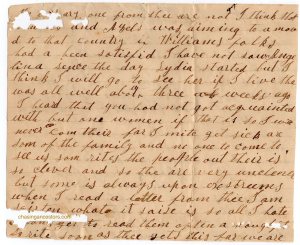 any one from thee are not I think that
and Azels was aiming to a move
to that country in Williams folks
had a idea satisfid I have not saw
since the day Lydia started but I
think I will go to see her if I live the
was all well abot three weeks ago
I heard that you had not got acquainted
with but one women if that is so I
never Com theirs for I mite get sick ar
som of the family and no one to come to
see us som rites the people out their is
so clever and so the are very unclever
but some is always upon exstreemes
when I read a letter from thee I am
what it saise is so all I hate
I dont get to read them often a nough
rite soon as thee gets this for we are
chasingancestors.com